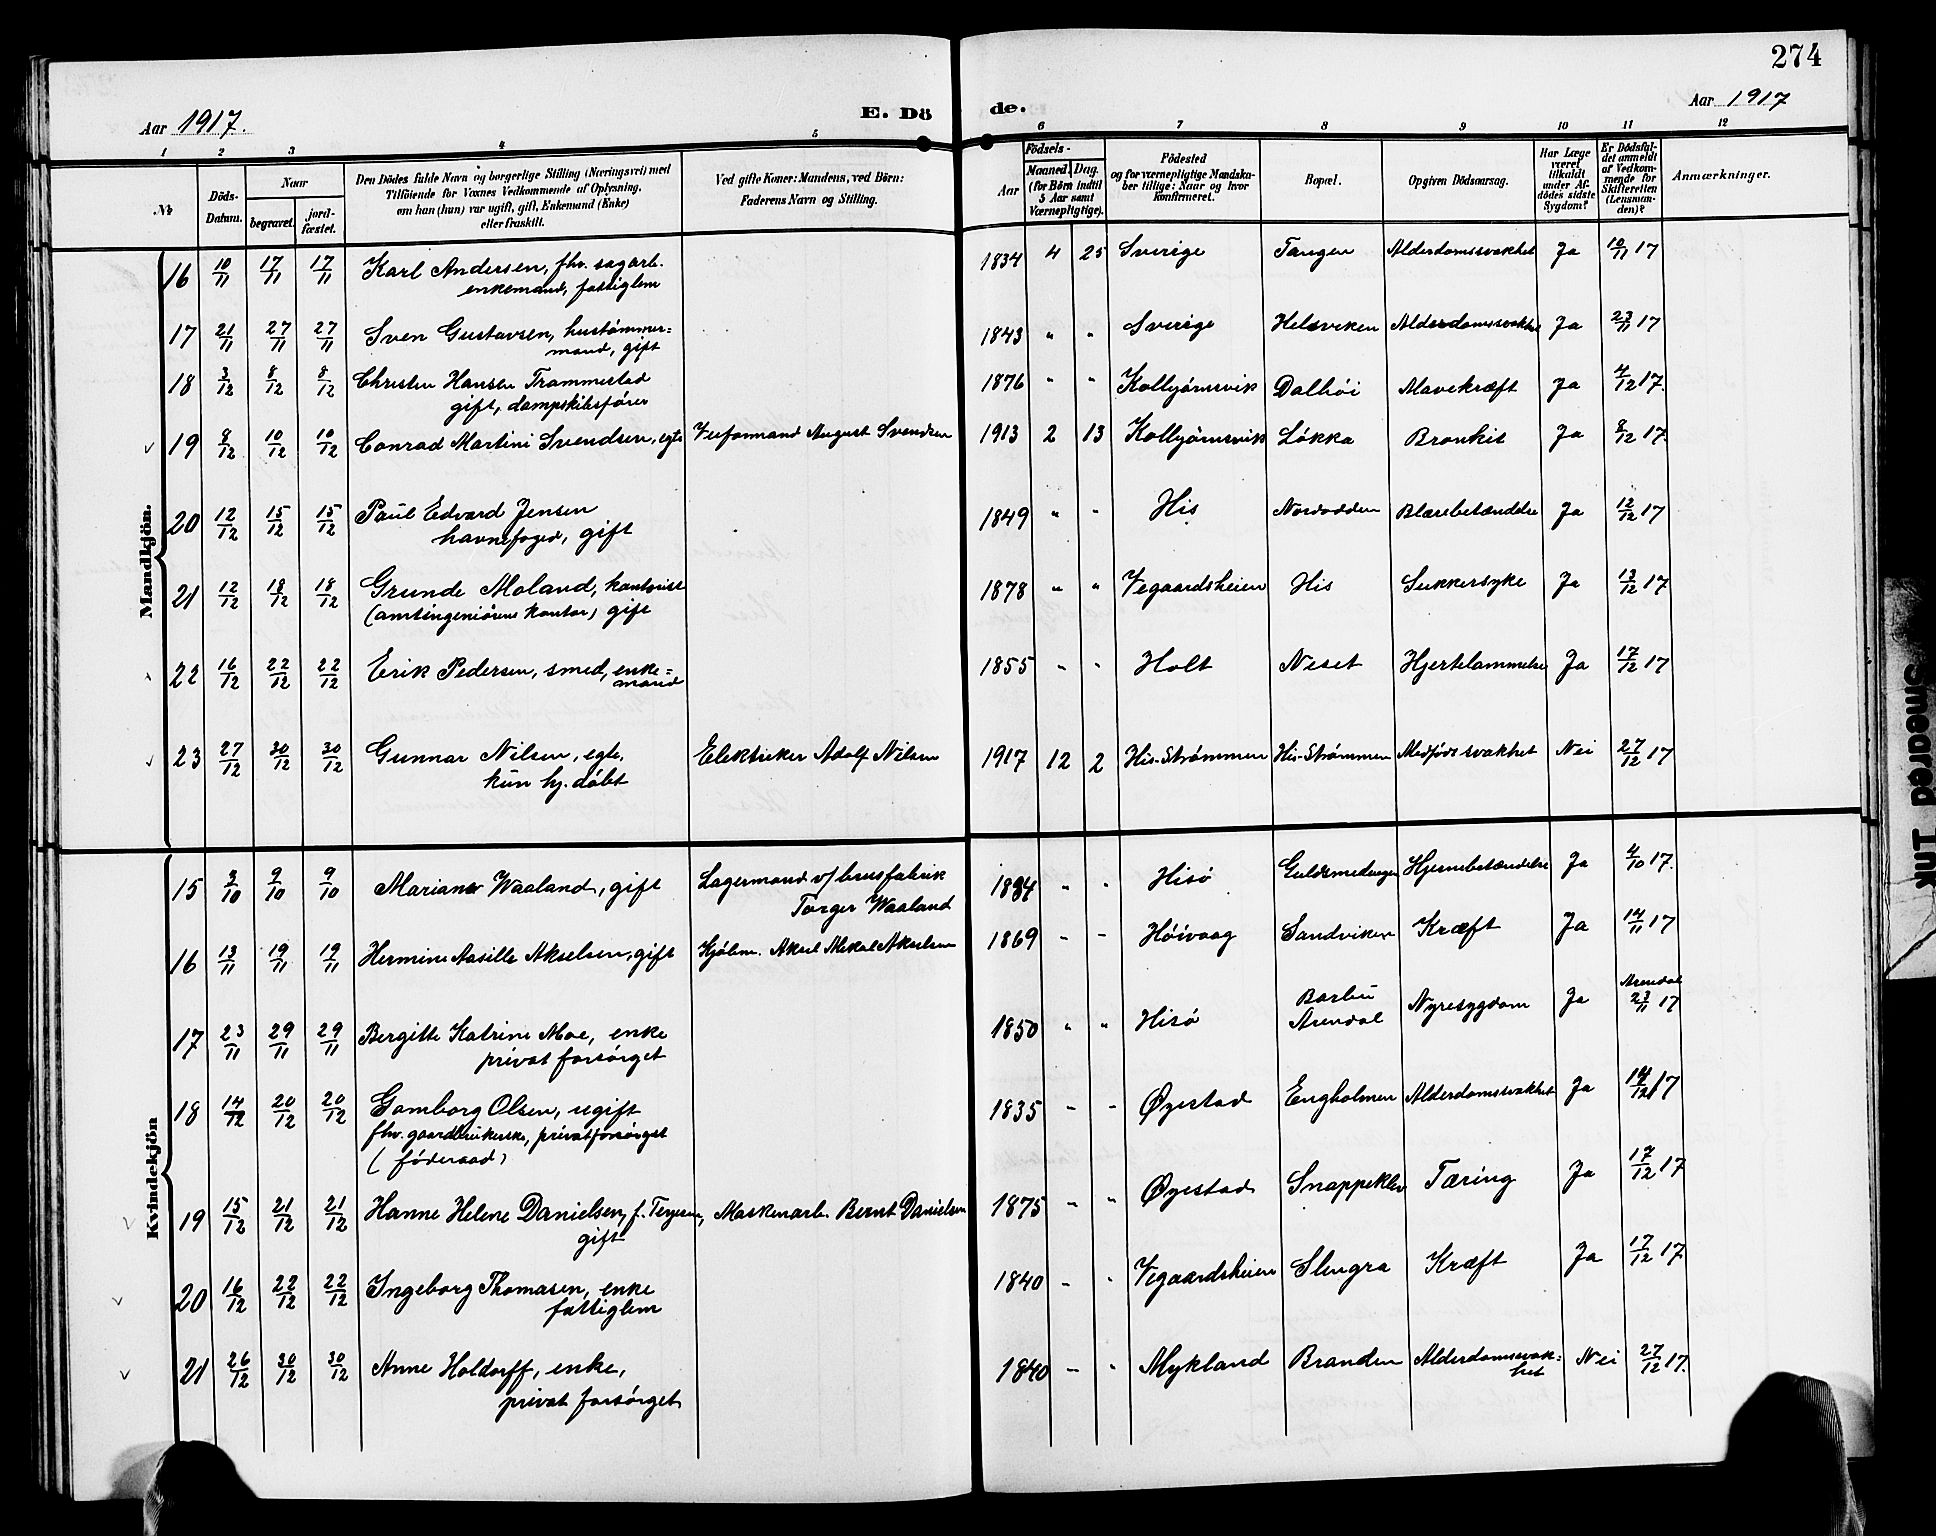 274
Aar 1917.
E. Dö
de.
Aar 1917
1 2 3 4 5 6 7 8 9 10 11 12
№
Döds-Datum.
Naar
begravet.
jord-fæstet.
Den Dödes fulde Navn og borgerlige Stilling (Næringsvei) med
Tilföiende for Voxnes Vedkommende af Oplysning,
om han (hun) var ugift, gift, Enkemand (Enke)
eller fraskilt.
Ved gifte Koner: Mandens, ved Börn:
Faderens Navn og Stilling.
Födsels-
Aar
Maaned. Dag.
(for Börn indtil
5 Aar samt
Værnepligtige).
Födested
og for værnepligtige Mandska-
ber tillige: Naar og hvor
konfirmeret.
Bopæl.
Opgiven Dödsaarsag.
Har Læge
været
tilkaldt
under Af-
dödes sidste
Sygdom?
Er Dödsfal-
det anmeldt
af Vedkom-
mende for
Skifteretten
(Lensman-
den)?
Anmærkninger.
Mandkjön.
16 10/11 17/11 17/11 Karl Andersen, fhv. sagarb. 1834 4 25 Sverige Tangen Alderdomssvakhet Ja 10/11 17
enkemand, fattiglem
17 21/11 27/11 27/11 Sven Gustavsen, hustømmer= 1843 " " Sverige Helsviken Alderdomssvakhet Ja 23/11 17
mand, gift
18 3/12 8/12 8/12 Christen Hansen Trommestad 1876 " " Kolbjørnsvik Dalhøi Mavekræft Ja 4/12 17.
gift, dampskibsfører
19 8/12 10/12 10/12 Conrad Martini Svendsen, egte Veiformand August Svendsen 1913 2 13 Kolbjørnsvik Løkka Bronkit Ja 8/12 17.
20 12/12 15/12 15/12 Paul Edvard Jensen 1849 " " His Nordodden Blærebetændelse Ja 12/12 17
havnefoged, gift
21 12/12 18/12 18/12 Grunde Moland, kontorist 1878 " " Vegaardsheien His Sukkersyke Ja 13/12 17
(amtsingeniørens kontor) gift
22 16/12 22/12 22/12 Erik Pedersen, smed, enke= 1855 " " Holt Neset Hjertelammelse Ja 17/12 17
mand
23 27/12 30/12 30/12 Gunnar Nilsen, egte, Elektriker Adolf Nilsen 1917 12 2 His-Strømmen His-Strømmen Medfødt svakhet Nei 27/12 17
kun hj. døbt
Kvindekjön
15 3/10 9/10 9/10 Mariane Waaland, gift Lagermand v/ brusfabrik 1894 " " Hisø Guldsmedengen Hjernebetændelse Ja 4/10 17.
Torger Waaland
16 13/11 19/11 19/11 Hermine Aasille Akselsen, gift Kjølem. Aksel Mekal Akselsen 1869 " " Høivaag Sandviken Kræft Ja 14/11 17
17 23/11 29/11 29/11 Bergitte Katrine Moe, enke 1850 " " Hisø Barbu Arendal Nyresygdom Ja Arendal 23/11 17
privat forsørget
18 14/12 20/12 20/12 Gomborg Olsen, ugift 1835 " " Øyestad Engholmen Alderdomssvakhet Ja 14/12 17
fhv. gaardbrukerske, privatforsørget
(føderaad)
19 15/12 21/12 21/12 Hanne Helene Danielsen, f. Terjesen, Maskenarb. Bernt Danielsen 1875 " " Øyestad Snappeklev Tæring Ja 17/12 17
gift
20 16/12 22/12 22/12 Ingeborg Thomasen, enke 1840 " " Vegaardsheien Slengra Kræft Ja 17/12 17.
fattiglem
21 26/12 30/12 30/12 Anne Holdorff, enke, 1840 " " Mykland Branden Alderdomssvak= Nei 27/12 17.
privat forsørget het
Smeared Ink